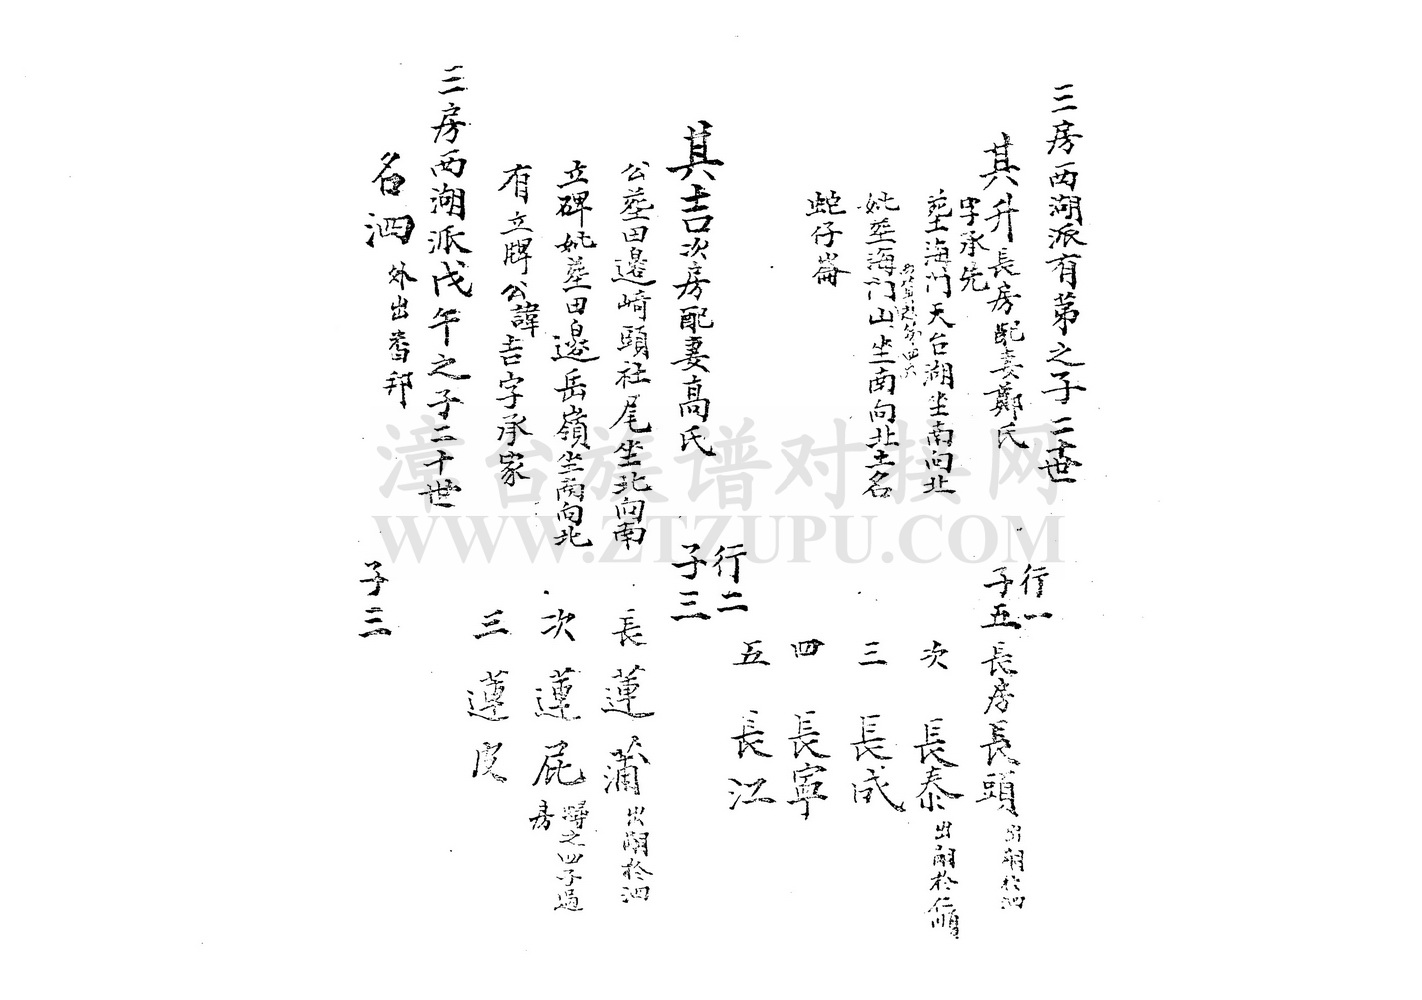 三房西湖派有第之子二十世
其升長房配妻鄭氏
字承先
塟海门天台湖坐南向北
妣塟海门山坐南向北土名
蛇仔崙
行一
子五
長房長頭
出嗣於泗
次長泰
出嗣於仁順
三長成
四長寧
五長江
其吉次房配妻高氏
公塟田邉崎頭社尾坐北向南
立碑妣塟田邉岳嶺坐南向北
有立牌公諱吉字承家
行二
子三
長蓮蒲
出嗣於泗
次蓮屁
之四子過
房
三蓮皮
三房西湖派戊午之子二十世
名泗
外出番邦
子三
漳台族谱对接网
WWW.ZTZUPU.COM